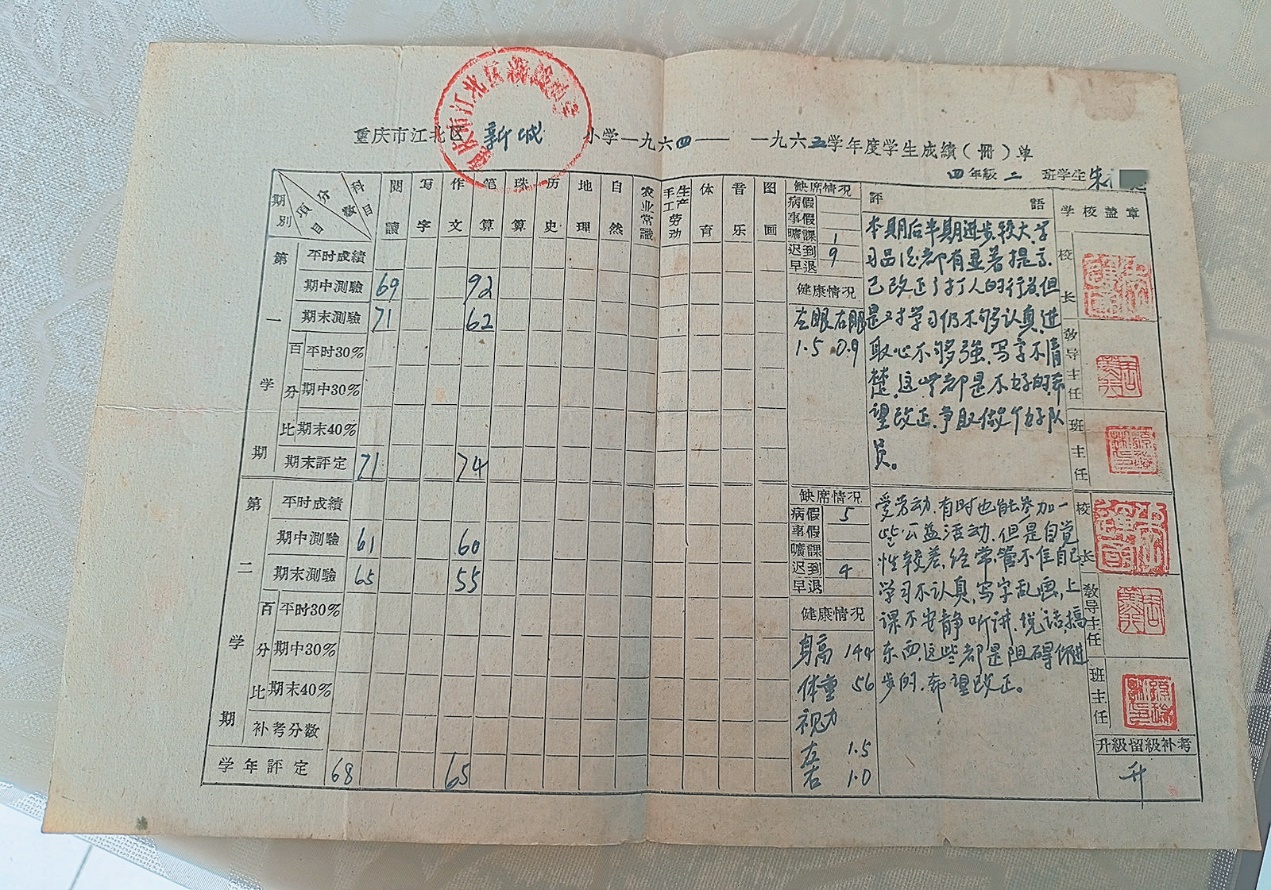 重庆市江北区 新城 小学一九六四—一九六五学年度学生成績(冊)单
四年級 二 班学生 朱
科目 分数 項目 期別
閱讀 写字 作文 笔算 珠算 历史 地理 自然 农业常識 手工生产劳动 体育 音乐 图画 缺席情况 評語 学校盖章
第一学期
平时成績
期中測驗 69 92
期末測驗 71 62
百分比
平时30%
期中30%
期末40%
期末評定 71 74
病假
事假
曠課 1
迟到 9
早退
健康情况
左眼右眼
1.5 0.9
本期后半期进步较大,学
习品德都有显著提高,
已改正了打人的行为,但
是对学习仍不够认真,进
取心不够强,写字不清
楚,这些都是不好的,希
望改正,争取做个好队
员。
校长
教导主任
班主任
第二学期
平时成績
期中測驗 61 60
期末測驗 65 55
百分比
平时30%
期中30%
期末40%
补考分数
学年評定 68 65
缺席情况
病假 5
事假
曠課
迟到 4
早退
健康情况
身高 144
体重 56
视力
左 1.5
右 1.0
爱劳动,有时也能参加一
些公益活动,但是自觉
性较差,经常管不住自己,
学习不认真,写字乱画,上
课不安静听讲,说话,搞
东西,这些都是阻碍你进
步的,希望改正。
校长
教导主任
班主任
升級留級补考
升